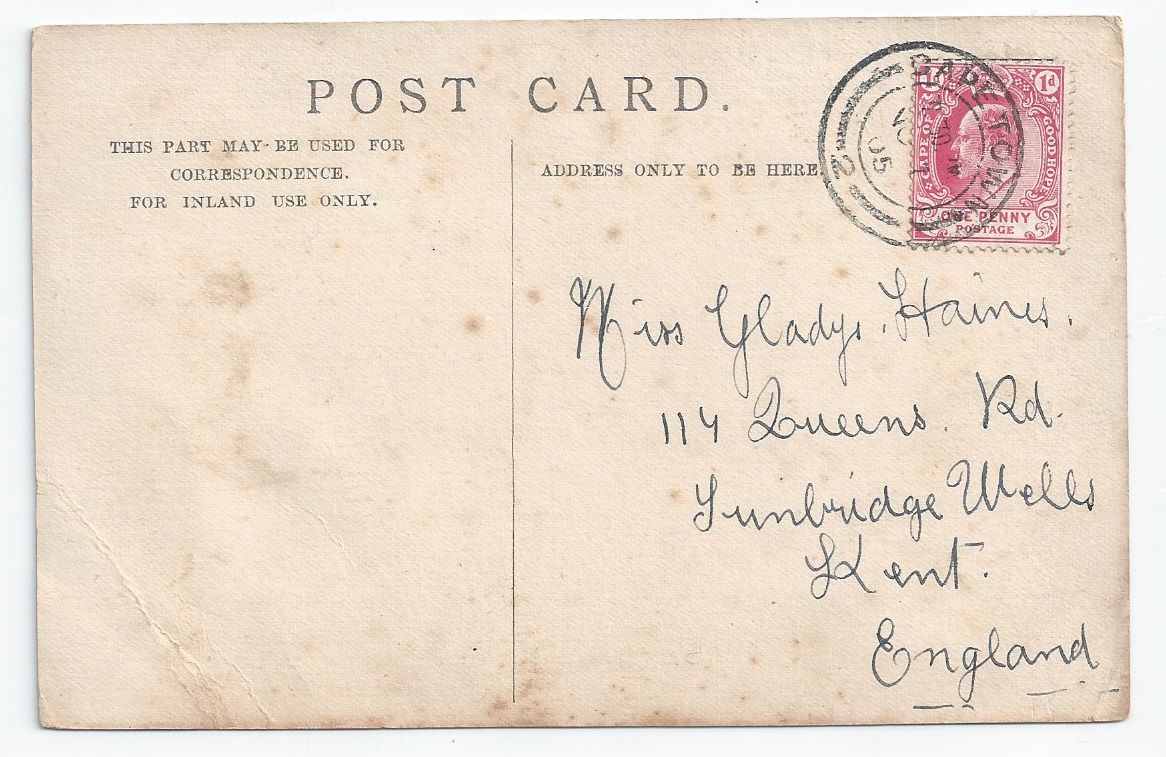 POST CARD.
THIS PART MAY BE USED FOR
CORRESPONDENCE.
FOR INLAND USE ONLY.
ADDRESS ONLY TO BE HERE.
CAPE TOWN
NO
05
2
1d
CAPE OF GOOD HOPE
ONE PENNY
POSTAGE
Miss Gladys. Haines.
114 Queens. Rd.
Tunbridge Wells
Kent.
England